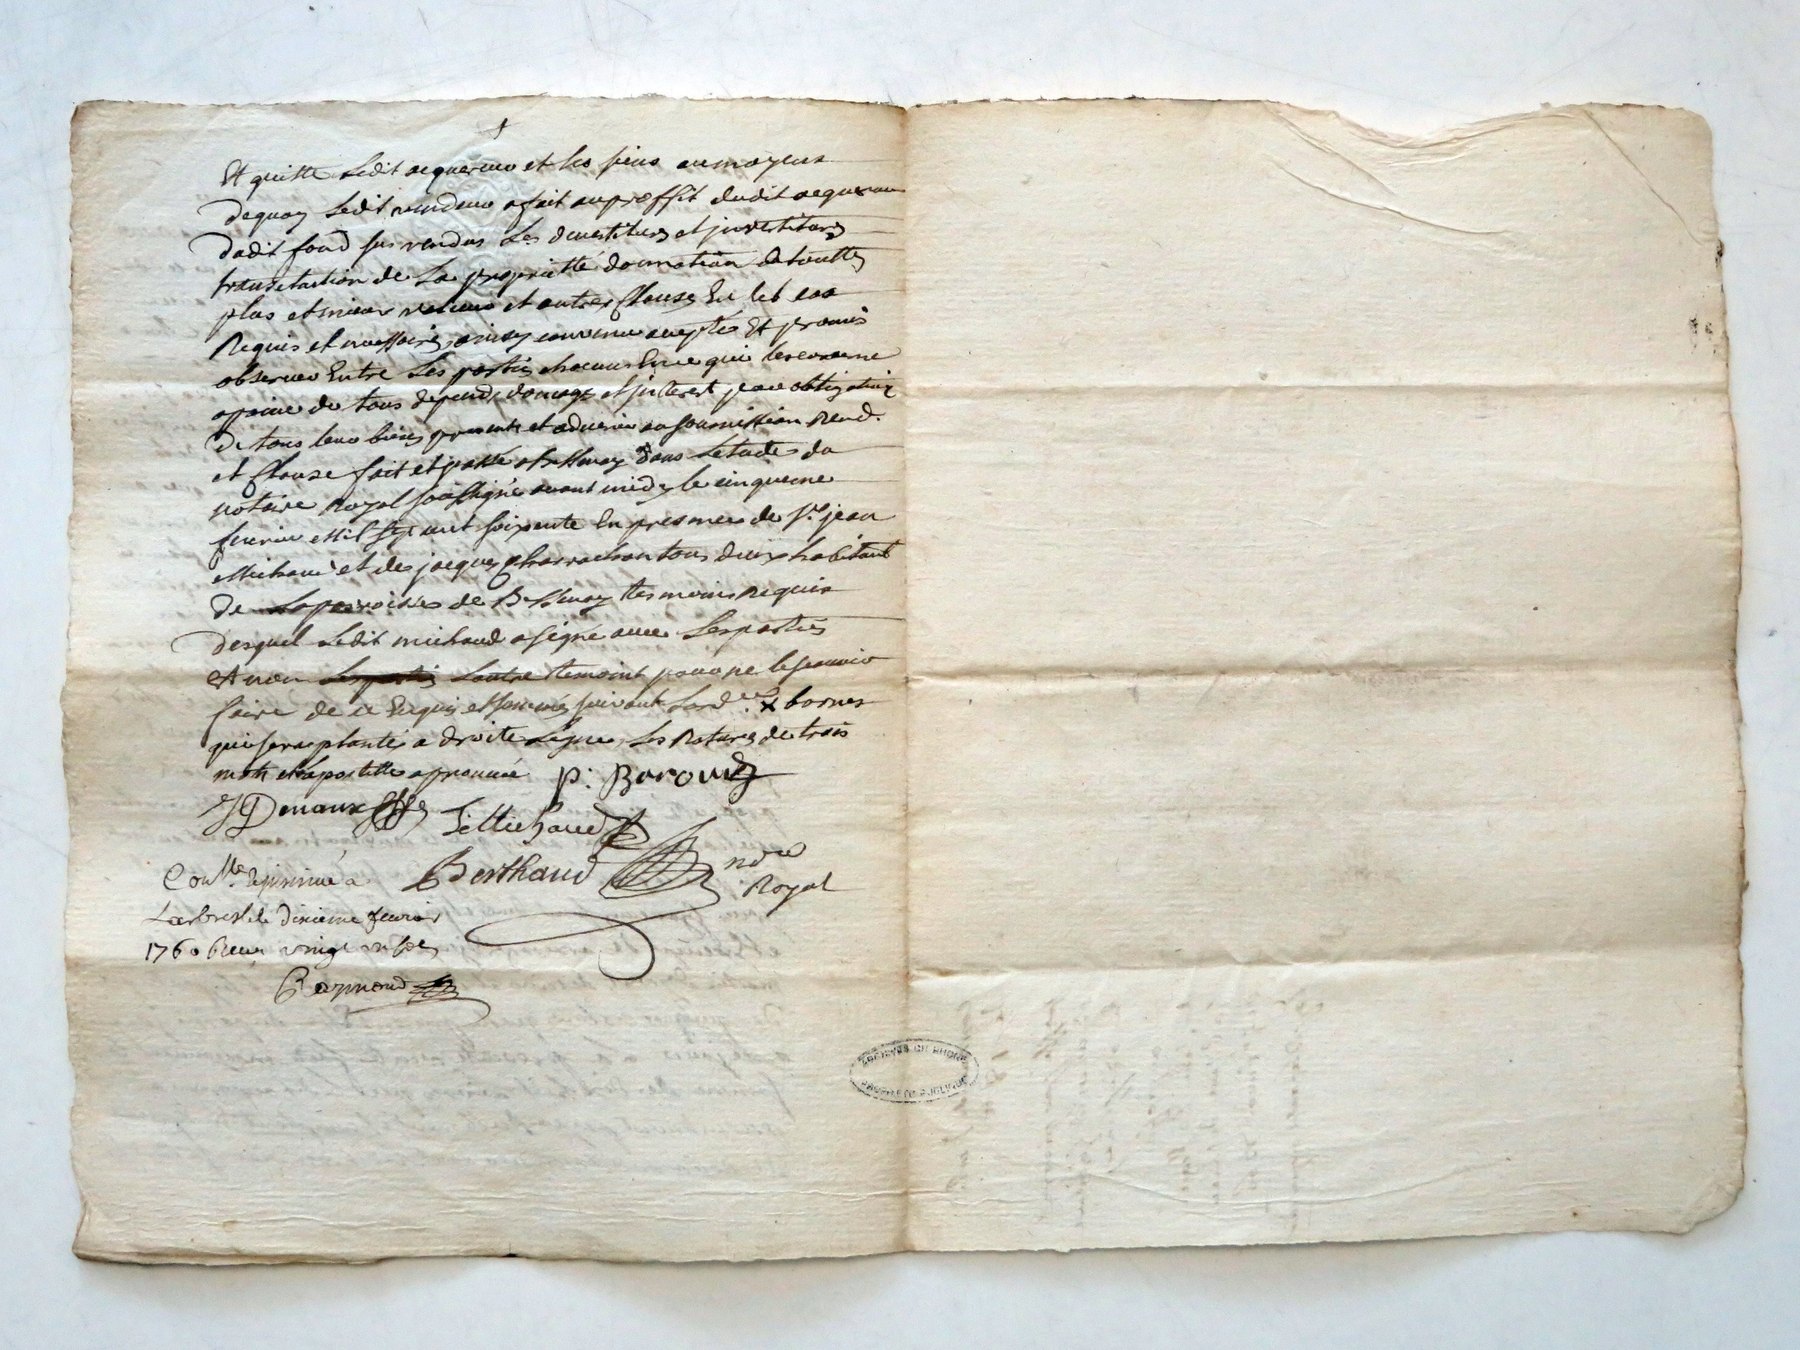 Et quitte Ledit acquereur et les siens aumoyens
dequoy Ledit vendeur a fait auproffit dudit acquereur
dudit fond sus vendus Les devestitures et jnvestitures
translaction de La proprietté donnation detouttes
plus etmieux valeur et autres Clauses En tel cas
Requis et necessaires ainsy convenu accepté Et promis
observer Entre Les parties chacuns Ence qui lesconcerne
apeine de tous depend, domages et jnterest
De tous leur biens presents et advenir soumission Rend.
et Clause fait et passé a Bessenay dans Letude du
notaire Royal soussigné avant midy le cinquieme
fevrier Mil sept cent soixante En presences de Sr. jean
Michaud et de jacques Charrachon tous deux habitant
De Laparroisse de Bessenay tesmoins Requis
desquel Ledit michaud a signé avec Lesparties
et non Lesparties Lautre temoint pour ne le scavoir
faire de ce Enquis et sommés suivant Lord.ce X bornes
qui seras plantés a droite Ligne, Les Ratures de trois
mots et Lapostille aprouvée P. Baroud
Michaud
Berthaud nore
Royal
Con.lle
Larbresle le dixieme fevrier
1760 Recu vingt
Raymond
ARCHIVES DU RHONE